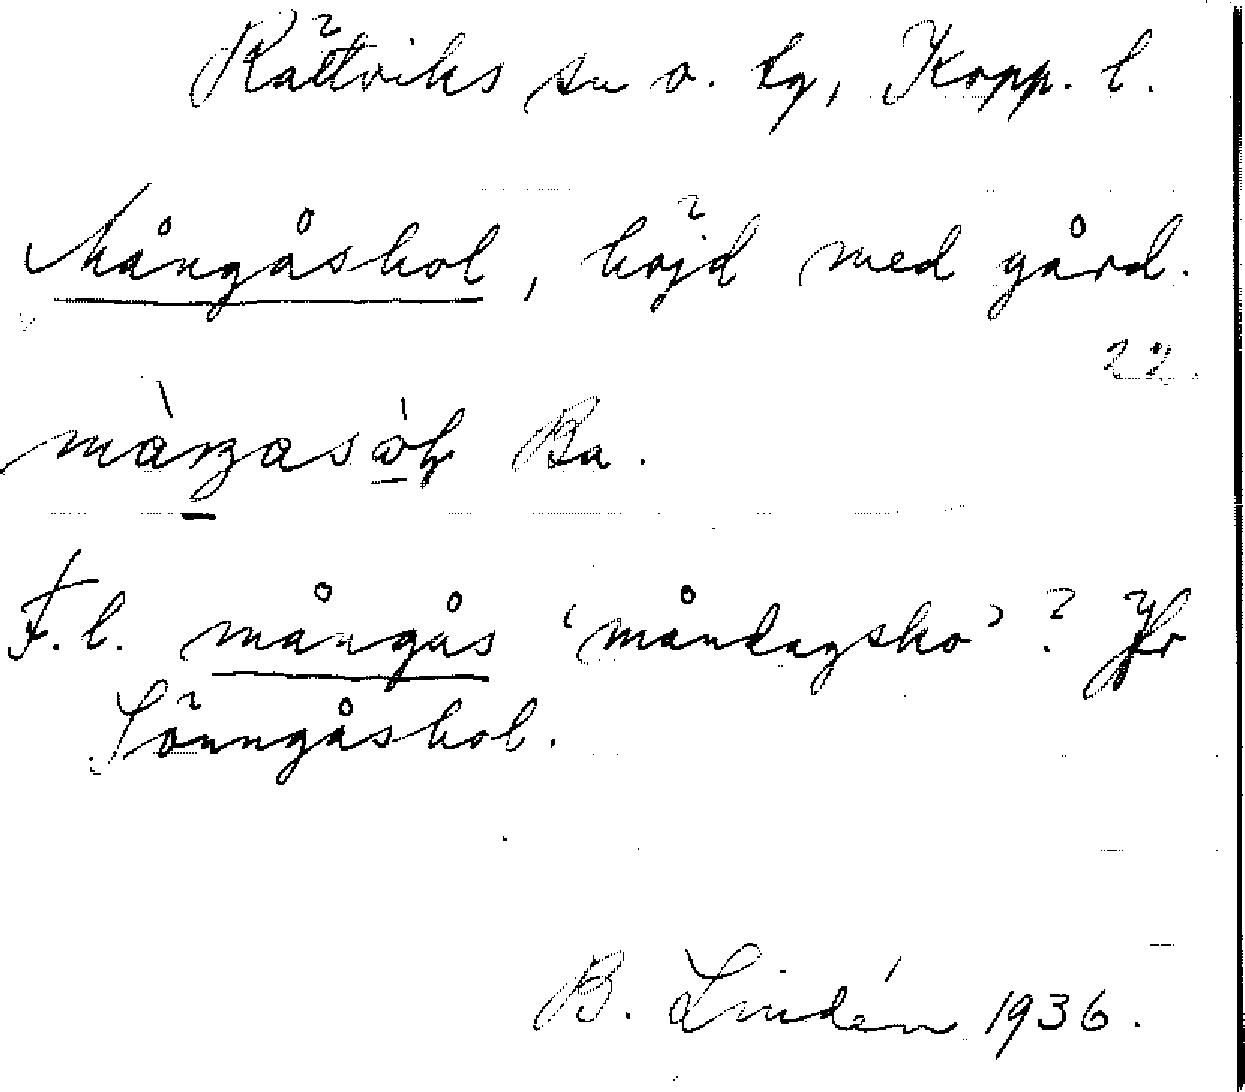 Rättviks sn o. tg, Kopp. l.
Mångåshol, höjd med gård.
22.
Ba.
F.l. mångås 'måndagsko'? Jfr
Sönngåshol.
B. Lindén 1936.